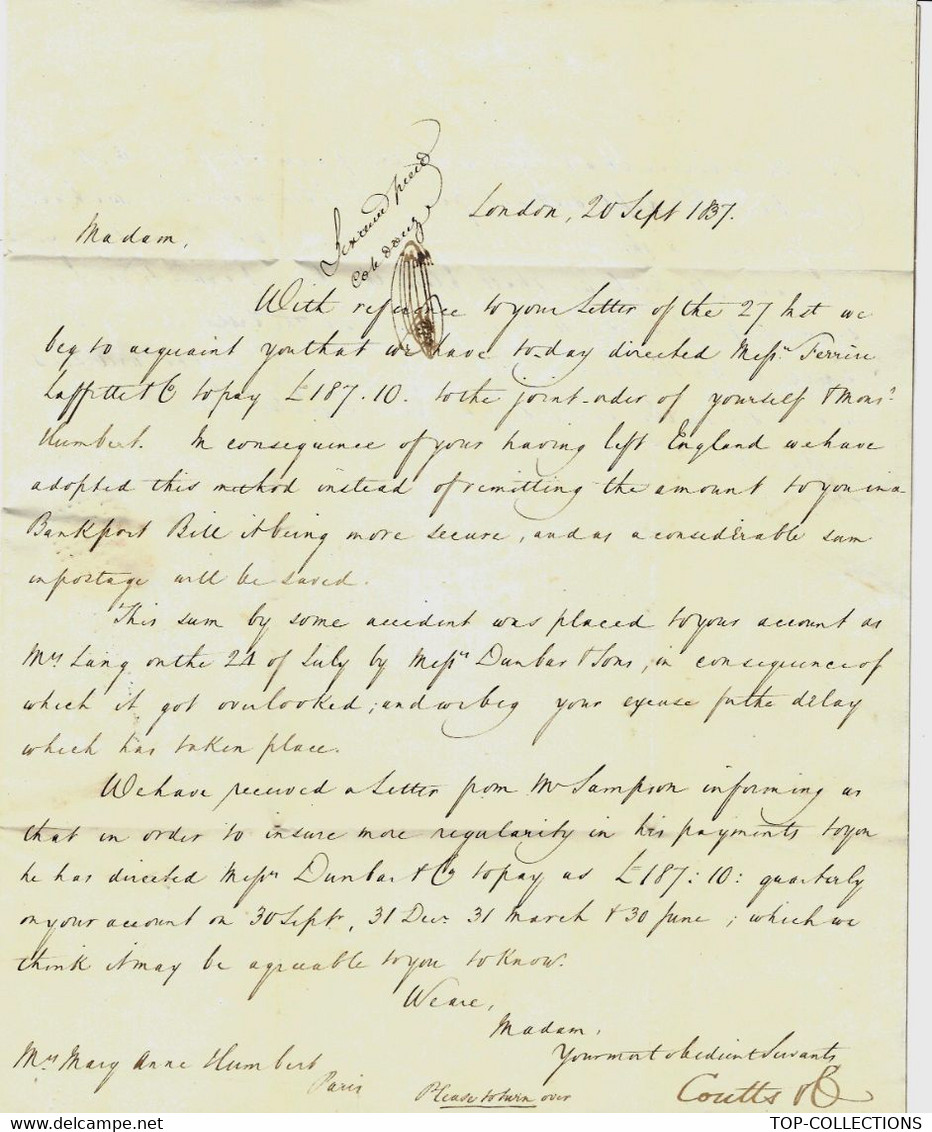 London, 20 Sept 1837.
Madam,
With reference to your Letter of the 27 Inst we
beg to acquaint you that we have to-day directed Messrs. Ferrere
Laffitte & Co to pay £187.10. to the joint-order of yourself & Monsr.
Humbert. In consequence of your having left England we have
adopted this method instead of remitting the amount to you in a
Bank post Bill it being more secure, and as a considerable sum
in postage will be saved.
This sum by some accident was placed to your account as
Mrs Lang on the 24 of July by Messrs Dunbar & Sons, in consequence of
which it got overlooked; and we beg your excuse for the delay
which has taken place.
We have received a Letter from Mr Sampson informing us
that in order to insure more regularity in his payments to you
he has directed Messrs Dunbar & Co to pay us £187:10: quarterly
on your account on 30 Sept, 31 Decr. 31 March & 30 June; which we
think it may be agreeable to you to know.
We are,
Madam,
Your most obedient Servants
Coutts & Co
Mrs Mary Anne Humbert
Paris
Please to turn over
TOP-COLLECTIONS